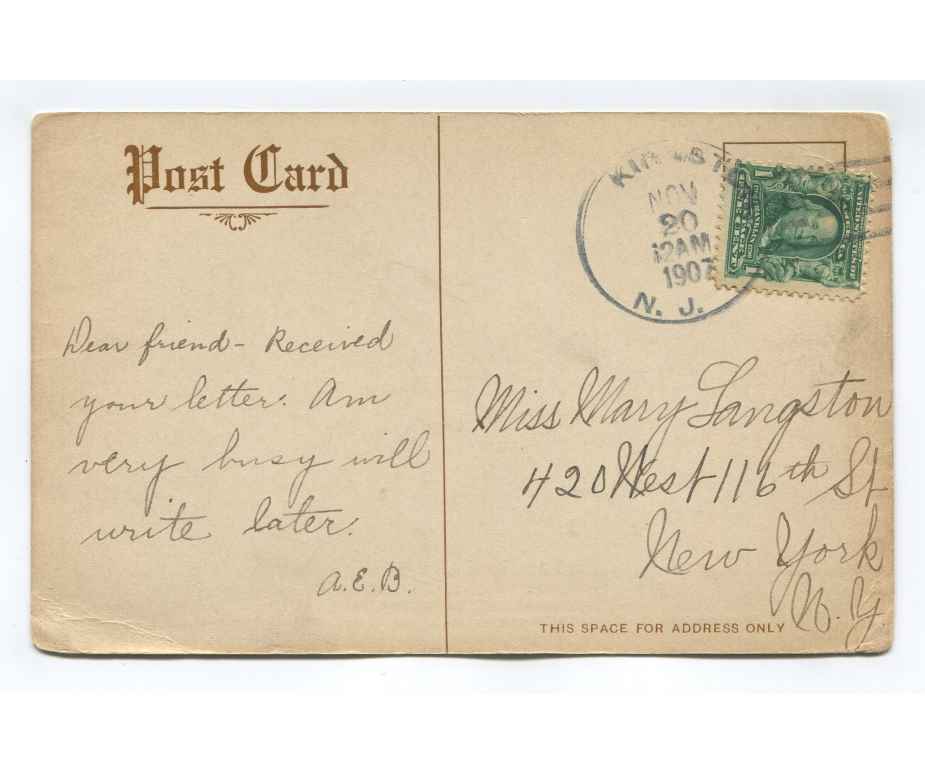 Post Card
NOV
20
12AM
1907
N. J.
1
1
Dear friend - Received
your letter. Am
very busy will
write later.
A.E.B.
Miss Mary Langston
420 West 116th St
New York
N.Y.
THIS SPACE FOR ADDRESS ONLY